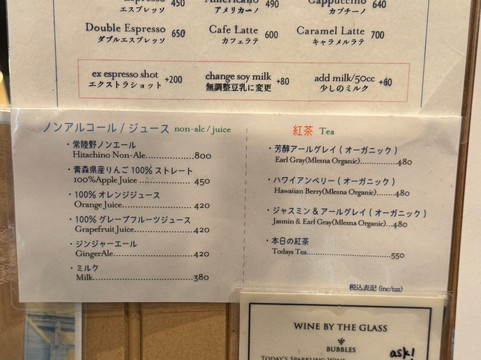 Espresso 450
エスプレッソ
Americano 490
アメリカーノ
Cappuccino 640
カプチーノ
Double Espresso 650
ダブルエスプレッソ
Cafe Latte 600
カフェラテ
Caramel Latte 700
キャラメルラテ
ex espresso shot +200
エクストラショット
change soy milk +80
無調整豆乳に変更
add milk/50cc +60
少しのミルク
ノンアルコール / ジュース non-alc / juice
・常陸野ノンエール
Hitachino Non-Ale....................800
・青森県産りんご 100% ストレート
100%Apple Juice .................... 450
・100% オレンジジュース
Orange Juice......................... 420
・100% グレープフルーツジュース
Grapefruit Juice..................... 420
・ジンジャーエール
GingerAle............................. 420
・ミルク
Milk.................................... 380
紅茶 Tea
・芳醇アールグレイ ( オーガニック )
Earl Gray(Mlesna Organic)............480
・ハワイアンベリー ( オーガニック )
Hawaiian Berry(Mlesna Organic)........480
・ジャスミン & アールグレイ ( オーガニック )
Jasmin & Earl Gray(Mlesna Organic)....480
・本日の紅茶
Todays Tea..............................550
税込表記 (inc/tax)
WINE BY THE GLASS
BUBBLES
TODAY'S SPARKLING WINE
ask!